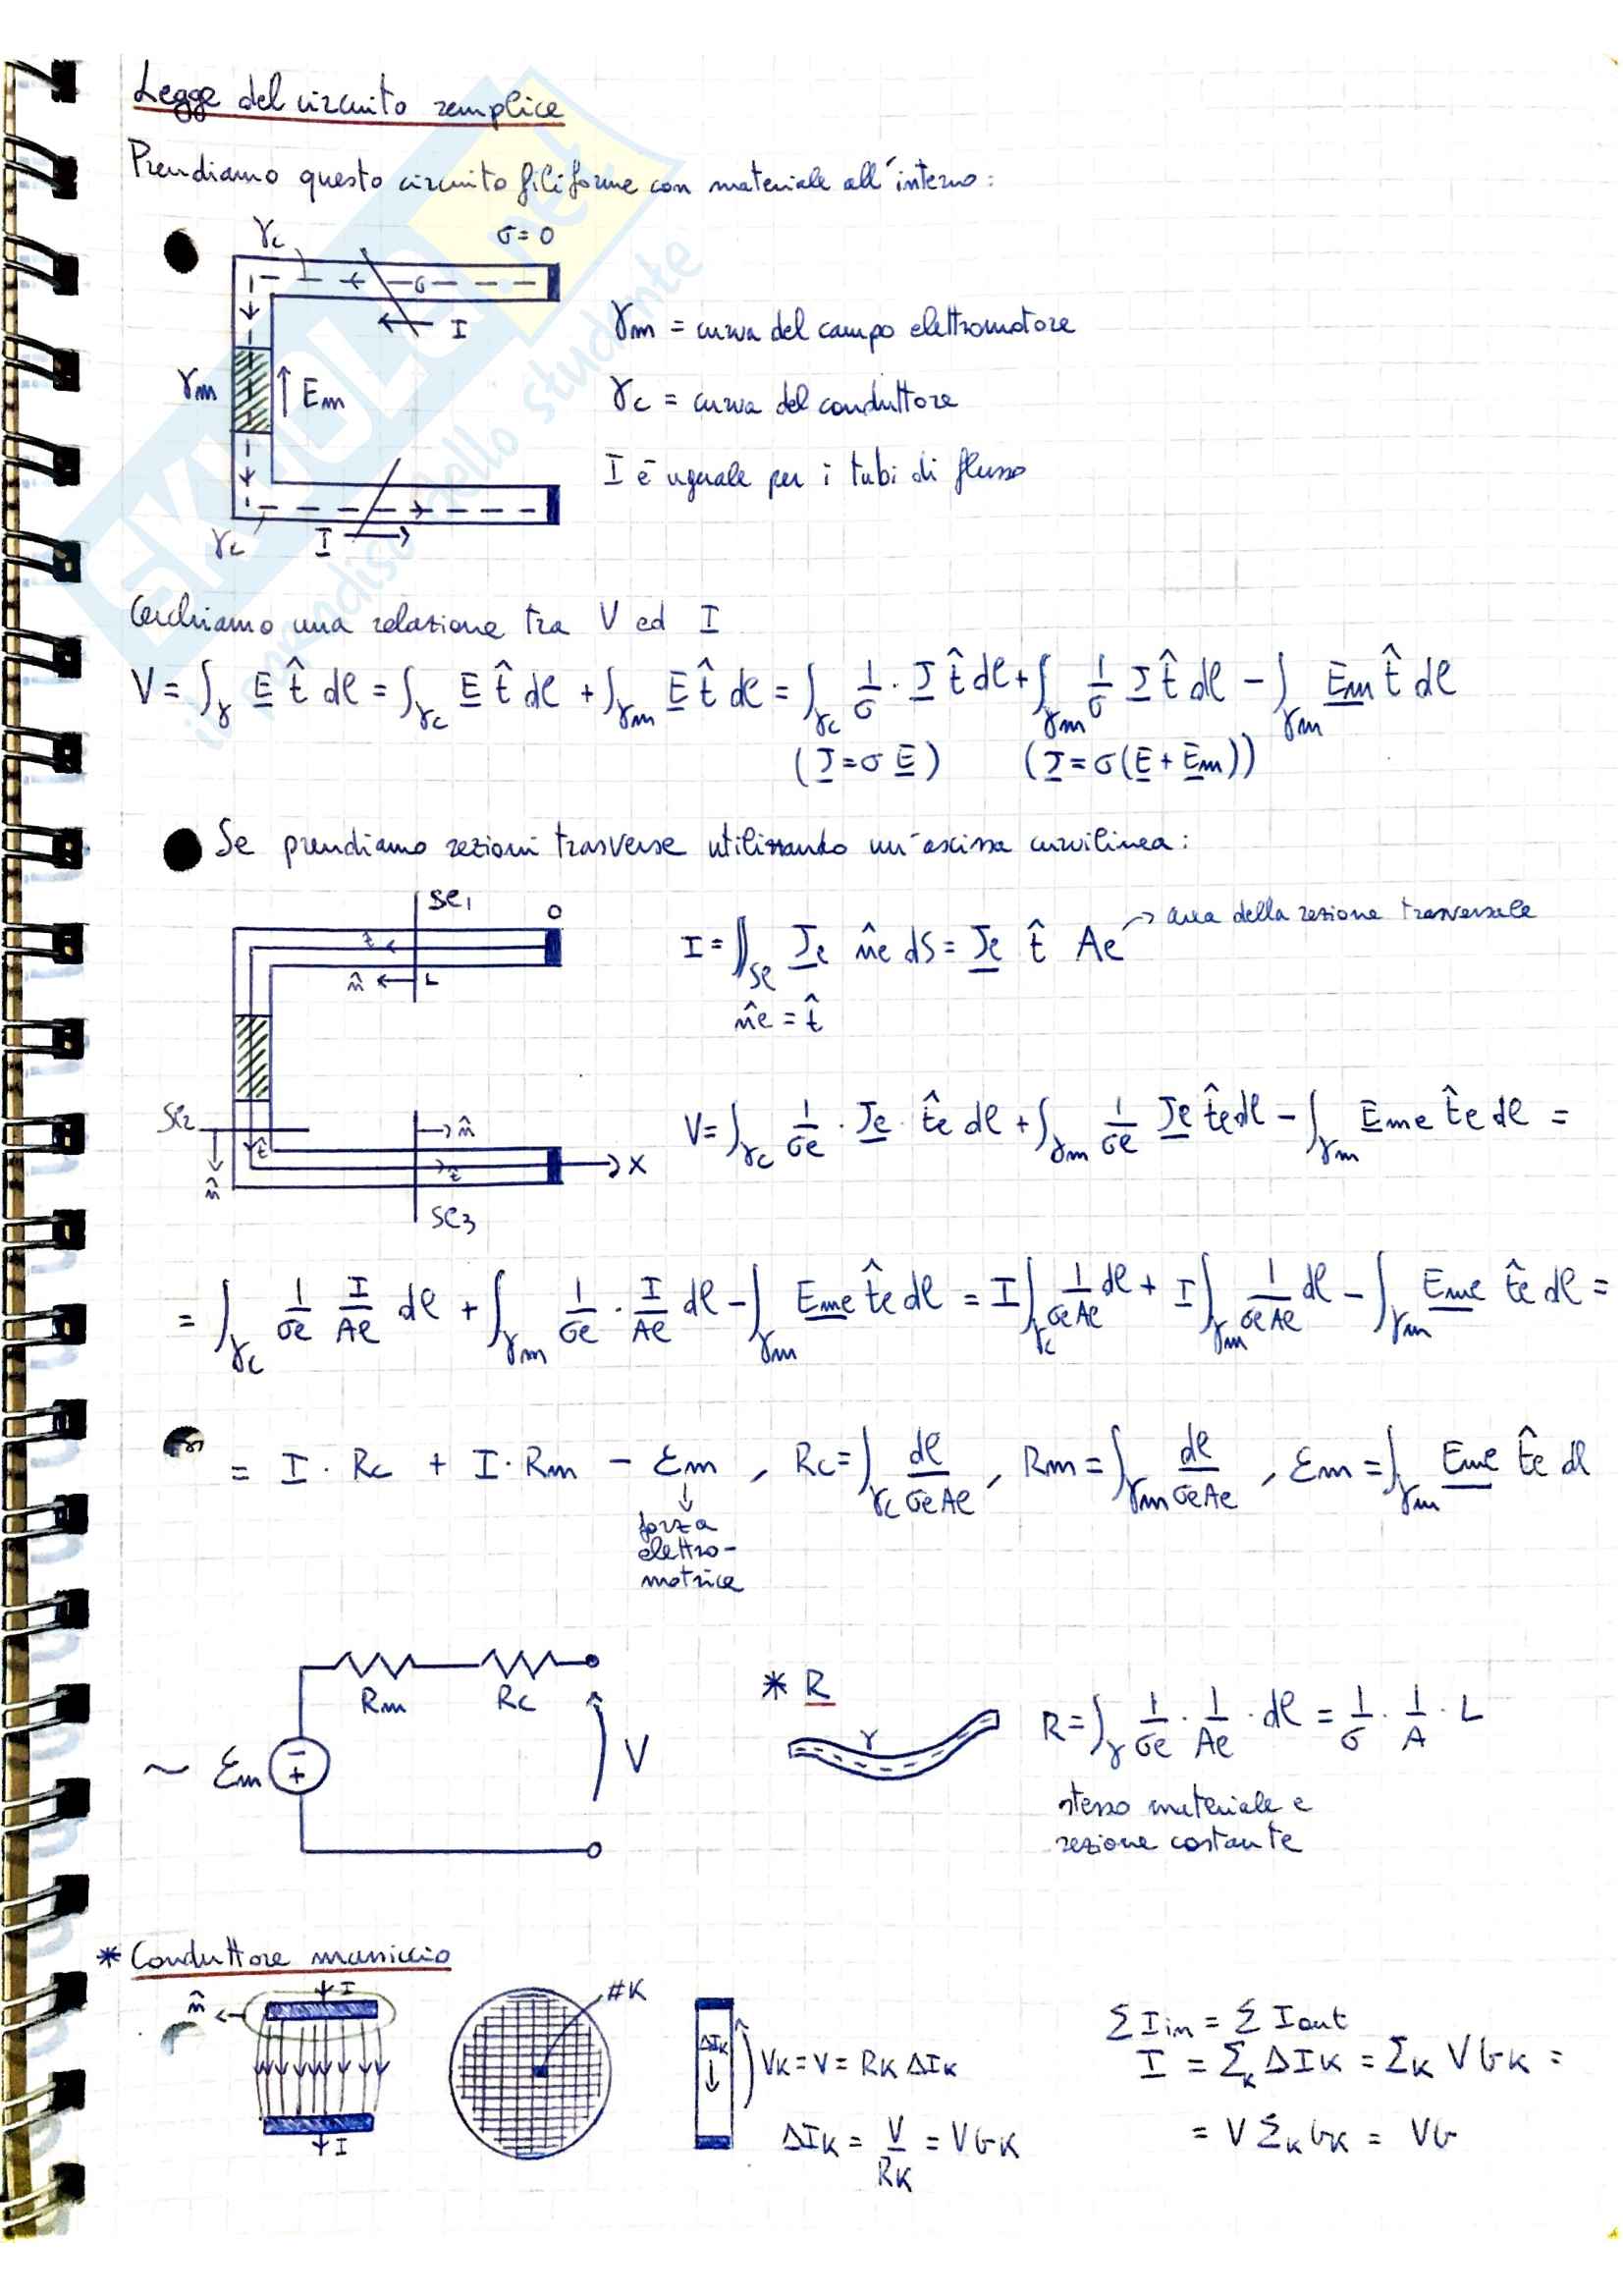 Legge del circuito semplice
Prendiamo questo circuito filiforme con materiale all'interno:
γc
σ=0
σ
I
γm = curva del campo elettromotore
γm
Em
γc = curva del conduttore
I è uguale per i tubi di flusso
γc
I
Cerchiamo una relazione tra V ed I
V = ∫γ E t̂ dl = ∫γc E t̂ dl + ∫γm E t̂ dl = ∫γc 1/σ · J t̂ dl + ∫γm 1/σ J t̂ dl - ∫γm Em t̂ dl
(J = σ E) (J = σ(E + Em))
Se prendiamo sezioni trasverse utilizzando un'ascissa curvilinea:
Sl1
O
t̂
n̂
L
I = ∬Sl Jl n̂l dS = Jl t̂ Al → area della sezione trasversale
n̂l = t̂
Sl2
n̂
t̂
n̂
t̂
x
Sl3
V = ∫γc 1/σl · Jl · t̂l dl + ∫γm 1/σl Jl t̂l dl - ∫γm Eml t̂l dl =
= ∫γc 1/σl I/Al dl + ∫γm 1/σl · I/Al dl - ∫γm Eml t̂l dl = I ∫γc 1/σlAl dl + I ∫γm 1/σlAl dl - ∫γm Eml t̂l dl =
= I · Rc + I · Rm - Ɛm , Rc = ∫γc dl/σlAl , Rm = ∫γm dl/σlAl , Ɛm = ∫γm Eml t̂l dl
forza
elettro-
motrice
Rm
Rc
~ Ɛm
- +
V
* R
γ
R = ∫γ 1/σl · 1/Al · dl = 1/σ · 1/A · L
stesso materiale e
sezione costante
* Conduttore massiccio
n̂
I
I
#K
ΔIK
VK = V = RK ΔIK
ΔIK = V/RK = VGK
Σ Iin = Σ Iout
I = ΣK ΔIK = ΣK VGK =
= V ΣK GK = VG
SKUOLA.net
il paradiso dello studente